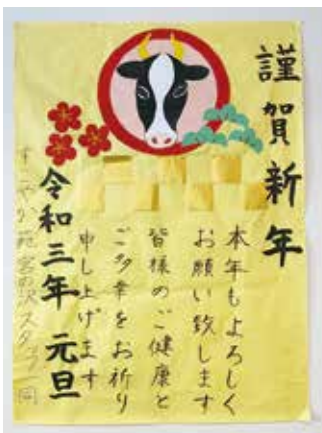 謹賀新年
本年もよろしく
お願い致します
皆様のご健康と
ご多幸をお祈り
申し上げます
令和三年 元旦
すこやか スタッフ一同